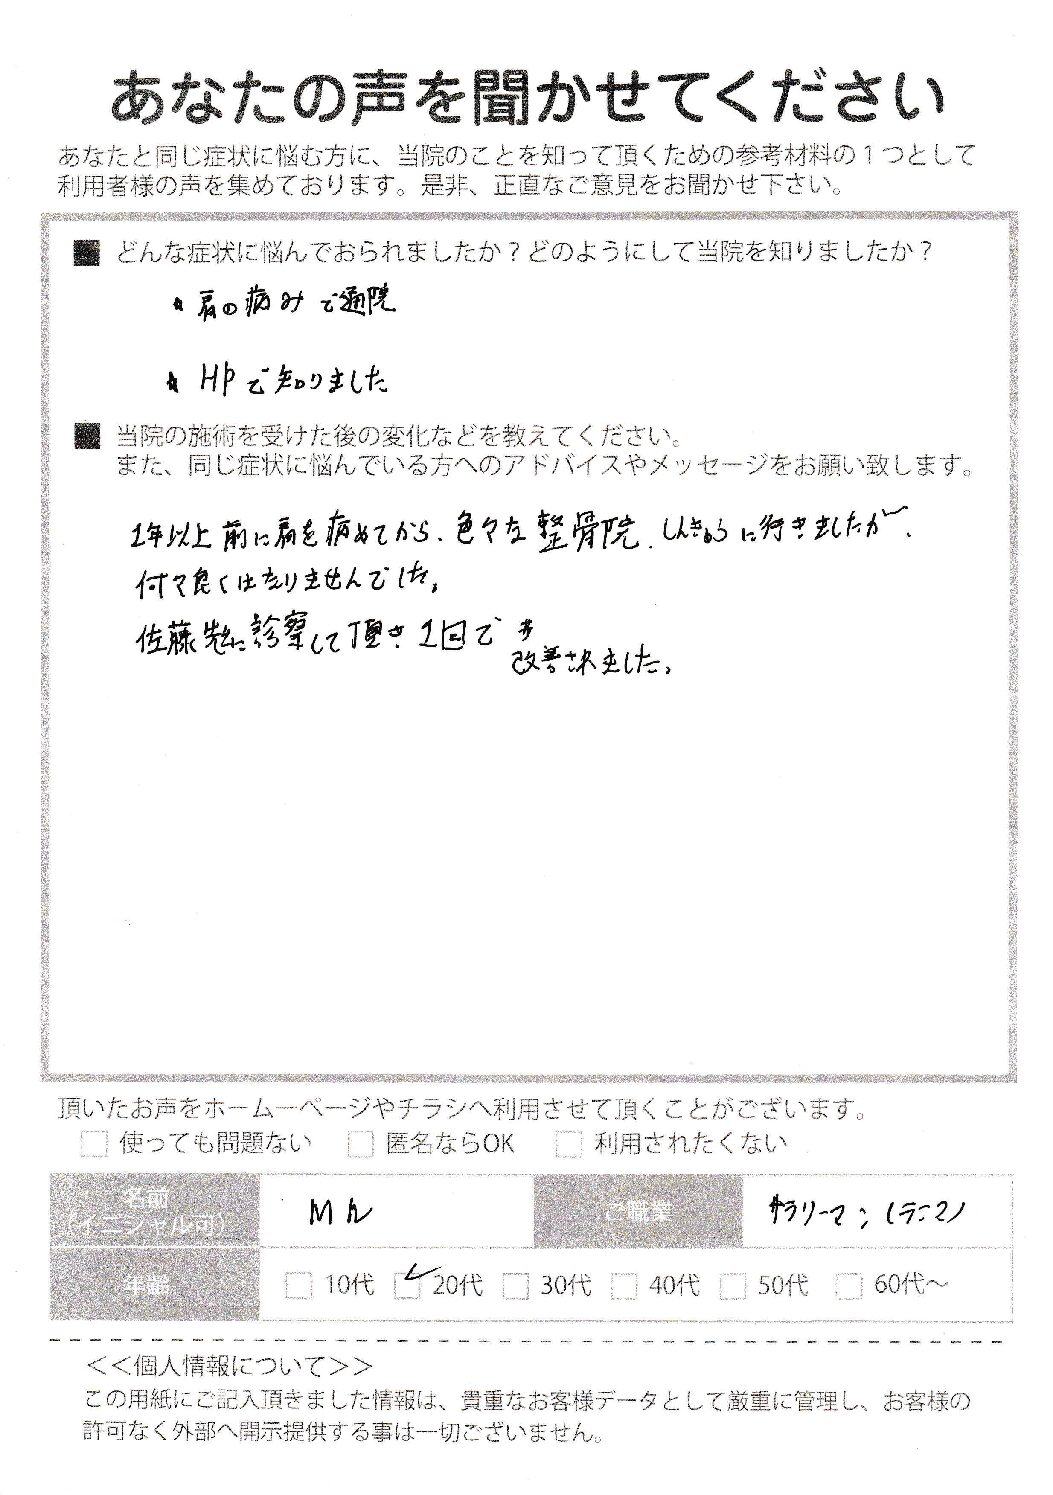 あなたの声を聞かせてください
あなたと同じ症状に悩む方に、当院のことを知って頂くための参考材料の１つとして
利用者様の声を集めております。是非、正直なご意見をお聞かせ下さい。
■ どんな症状に悩んでおられましたか？どのようにして当院を知りましたか？
肩の病みで通院
HPで知りました
■ 当院の施術を受けた後の変化などを教えてください。
また、同じ症状に悩んでいる方へのアドバイスやメッセージをお願い致します。
1年以上前に肩を病めてから、色々な整骨院、しんきゅうに行きましたが、
何も良くはなりませんでした。
佐藤先生に診察して頂き、1回で
改善されました。
頂いたお声をホームーページやチラシへ利用させて頂くことがございます。
使っても問題ない 匿名ならOK 利用されたくない
名前 M ご職業 サラリーマン
（イニシャル可）
年齢 10代 20代 30代 40代 50代 60代〜
＜＜個人情報について＞＞
この用紙にご記入頂きました情報は、貴重なお客様データとして厳重に管理し、お客様の
許可なく外部へ開示提供する事は一切ございません。